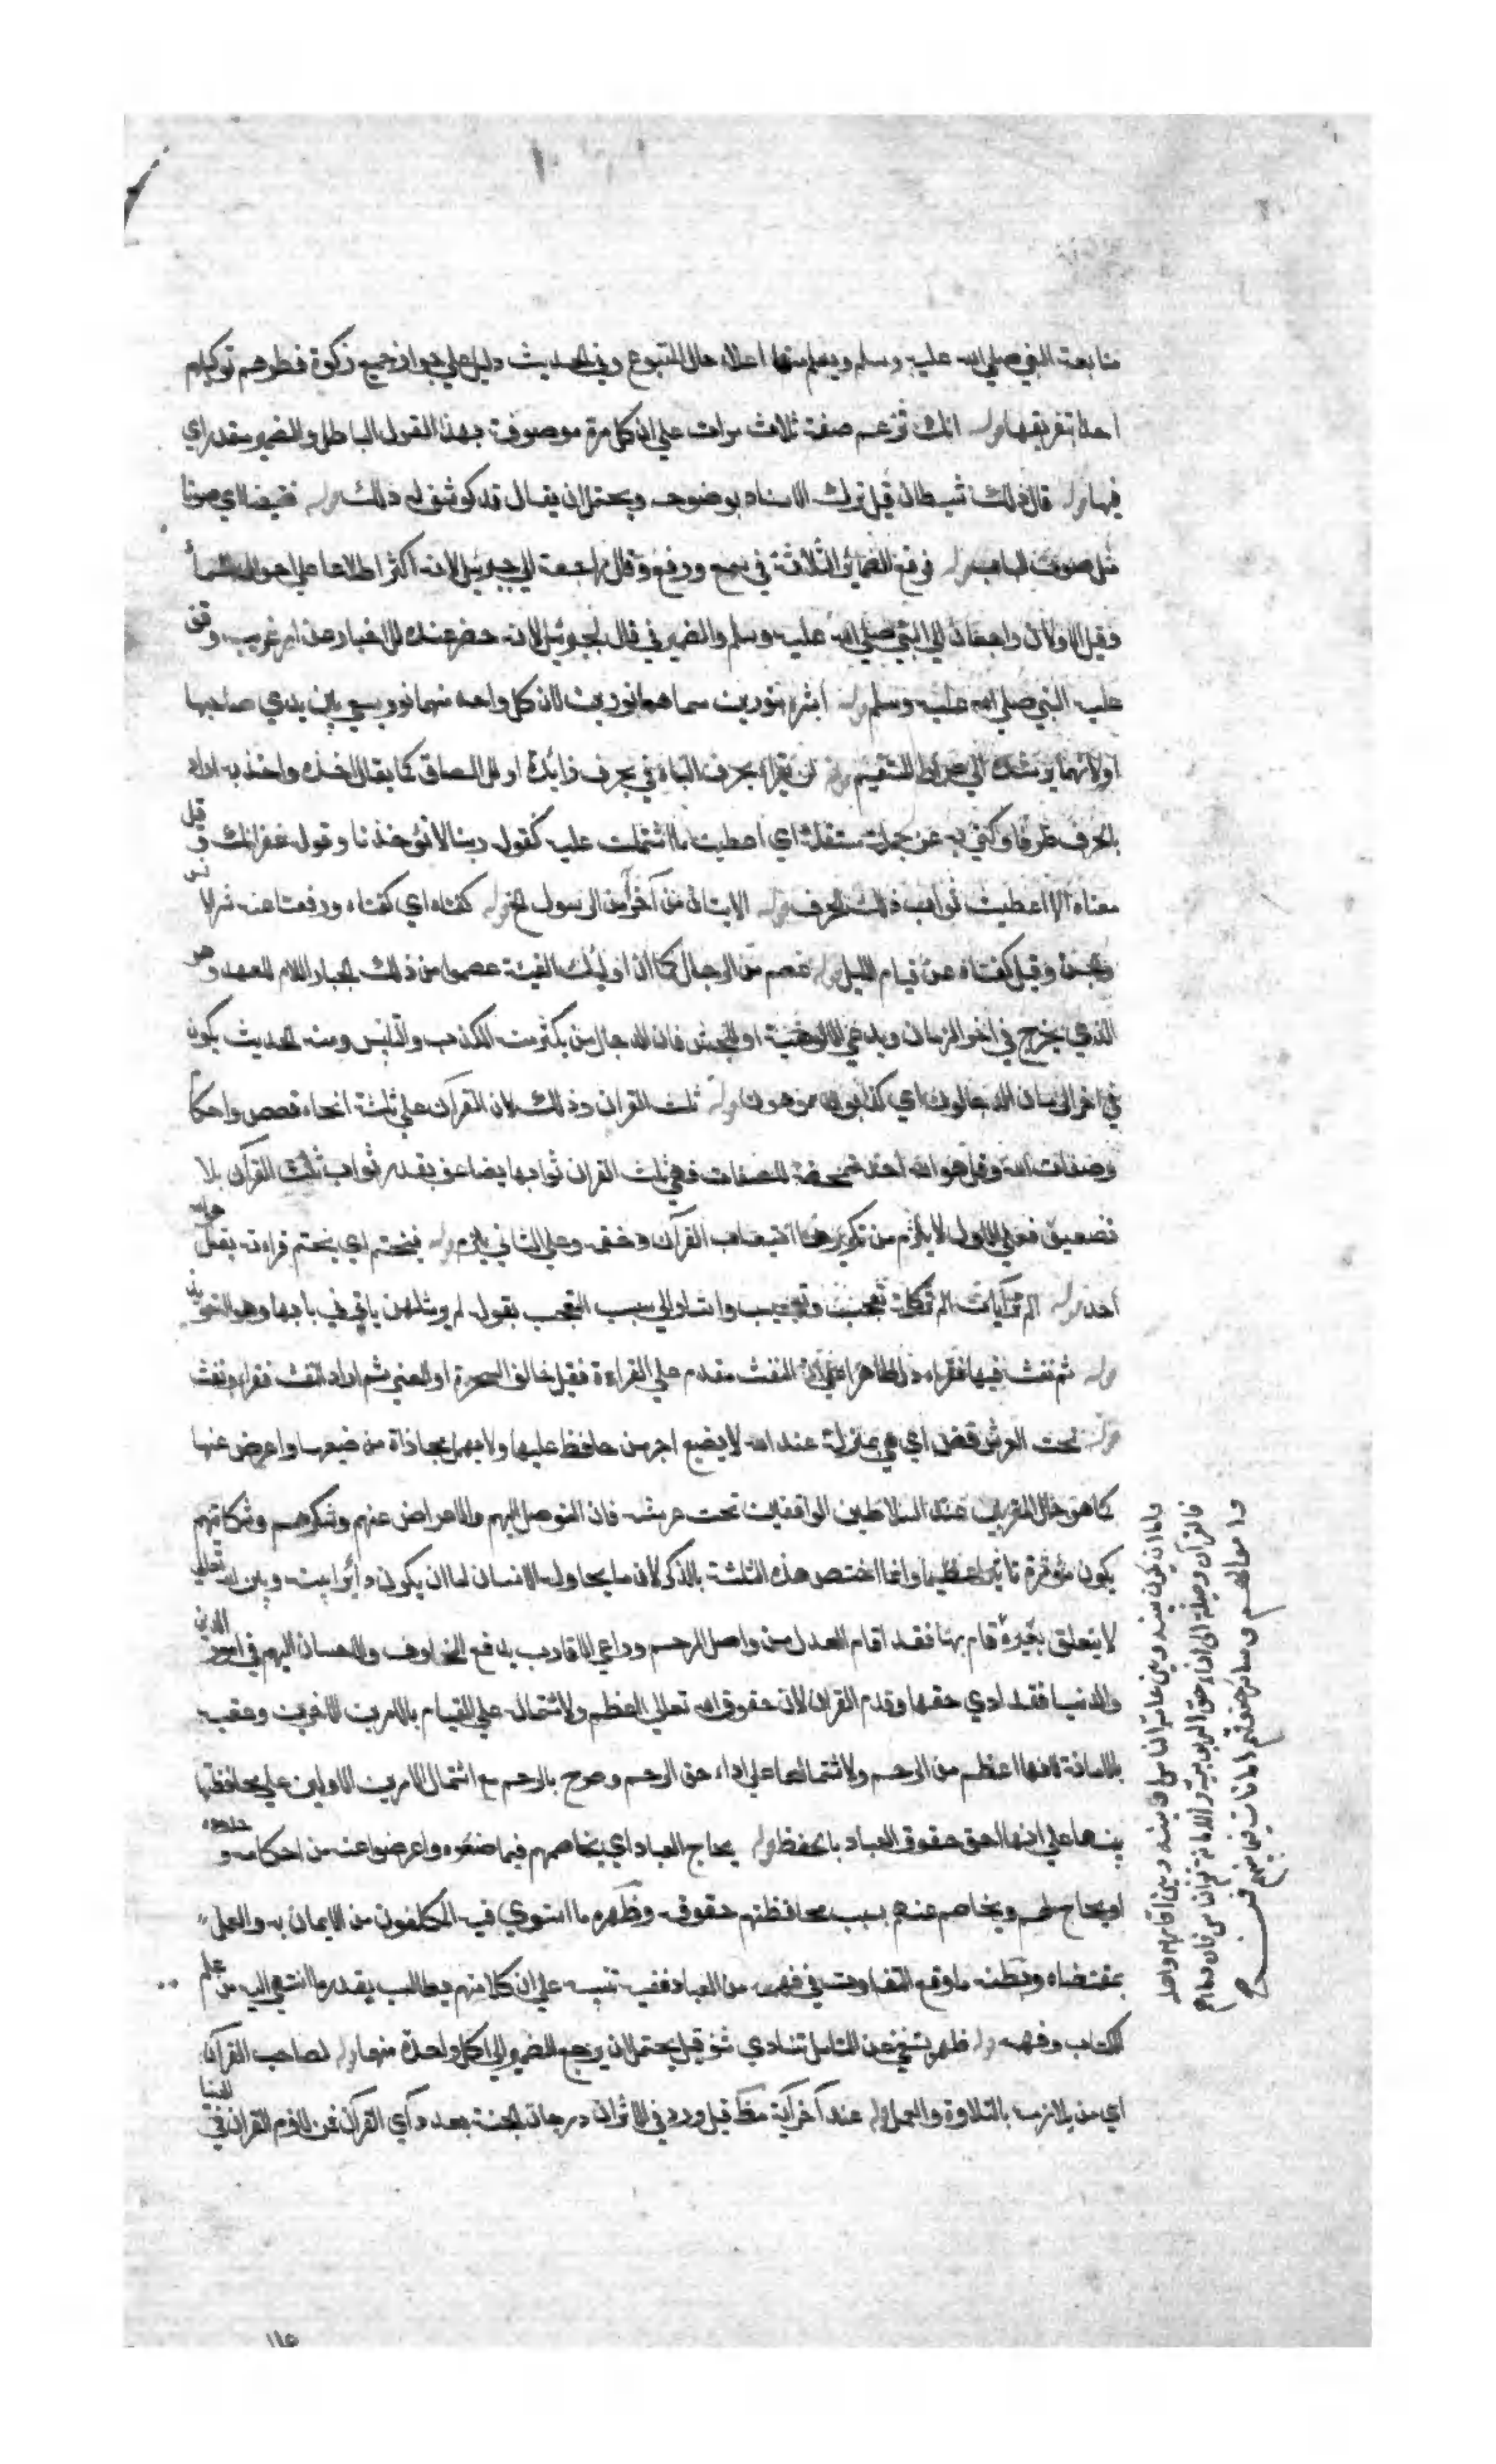 متابعة النبي صلى الله عليه وسلم ويعلم منها اعلاء حال المتبوع وفي الحديث دليل علي جواز جميع زكوة فطرهم توكيلهم
احدا بتفريقها قوله انك تزعم صفة ثلاث مرات علي ان كل مرة موصوفة بهذا القول الباطل والضمير مقدر اي
فيها قوله قال ذلك شيطان قيل ترك الاسناد بوضوحه ويحتمل ان يقال قد كوشف له ذلك قوله نقيضا اي صوتا
مثل صوت الباب قوله فرفع الضمائر الثلاثة في سمع ورفع وقال راجعة الي جبريل لانه اكثر اطلاعا علي احوال السماء
وقيل الاولان راجعان الي النبي صلي الله عليه وسلم والضمير في قال لجبريل لانه حضر عنده للاخبار عن امر غريب وقف
عليه النبي صلي الله عليه وسلم قوله ابشر بنورين سماهما نورين لان كل واحد منهما نور يسعي بين يدي صاحبها
او لانهما يرشدانه الي صراط المستقيم قوله لن تقرأ بحرف الباء في بحرف زائدة او للالصاق كما يقال اخذه واخذ به اراد
بالحرف طرفا وكني به عن جملة مستقلة اي اعطيت ما اشتملت عليه كقوله ربنا لا تؤاخذنا وقوله غفرانك وقيل
معناه الا اعطيت ثواب ذلك الحرف قوله الايتان من آخر آمن الرسول الخ قوله كفتاه اي كفتاه ودفعتا عنه شر الانس
والجن وقيل كفتاه عن قيام الليل قوله عصم من الدجال كما ان اوليك الفية عصموا من ذلك الجبار اللام للعهد وهو
الذي يخرج في اخر الزمان ويدعي الالوهية او للجنس فان الدجال من يكثر منه الكذب والتلبيس ومنه الحديث يكون
في اخر الزمان الدجالون اي كذابون مموهون قوله ثلث القران وذلك لان القرآن علي ثلثة انحاء قصص واحكام
وصفات الله وقل هو الله احد متمحضة للصفات فهي ثلث القران ثوابها يضاعف بقدر ثواب ثلث القرآن بلا
تضعيف فعلي الاول لا يلزم من تكريرها استيعاب القرآن وختمه وعلي الثاني يلزم قوله فيختم اي يختم قراءته بقل هو الله
احد قوله الم تر آيات الم تر كلمة تعجب وتعجيب واشار الي سبب التعجب بقوله لم ير مثلهن يا في في بابها وهو التعويذ
قوله ثم نفث فيها فقراء دل ظاهرا علي ان النفث مقدم علي القراءة فقيل خالف السحرة او المعني ثم اراد النفث فقراء ونفث
قوله تحت العرش قصد اي هي بمنزلة عند الله لا يضيع اجر من حافظ عليها ولا يهمل مجازاة من ضيعها واعرض عنها
كما هو حال المقربين عند السلاطين الواقفين تحت عرشه فان التوصل اليهم والاعراض عنهم وشكرهم وشكايتهم
يكون مؤثرة تاثيرا عظيما وانما اختص هذه الثلثة بالذكر لان ما يحاوله الانسان اما ان يكون دائرا بينه وبين الله تعالي
لا يتعلق بغيره قام بها فقد اقام العدل من واصل الرحم وراعي الاقارب بدفع المخاوف والاحسان اليهم في امور الدين
والدنيا فقد ادي حقها وقدم القران لان حقوق الله تعالي اعظم ولاشتماله علي القيام بالامرين الاخرين وعقبه
بالامانة لانها اعظم من الرحم ولاشتمالها علي اداء حق الرحم وصرح بالرحم مع اشتمال الامرين الاولين علي محافظتها
تنبيها علي انها احق حقوق العباد بالحفظ قوله يحاج العباد اي يخاصمهم فيما ضيعوه واعرضوا عنه من احكامه وحدوده
او يحاج لهم ويخاصم عنهم بسبب محافظتهم حقوقه وظهره ما استوي فيه المكلفون من الايمان به والعمل
بمقتضاه وبطنه ما وقع التفاوت في فهمه من العباد ففيه تنبيه علي ان كلا منهم يطالب بقدر ما انتهي اليه من علم
الكتاب وفهمه قوله تنادي قيل يحتمل ان يرجع الضمير الي كل واحدة منها قوله لصاحب القرآن
اي من يلازمه بالتلاوة والعمل قوله عند آخر آية قيل ورد في الاثر ان درجات الجنة بعدد آي القرآن فمن
واما ان يكون بينه وبين عامة الناس او بينه وبين اقاربه واهله
فالقرآن وصلة الي اداء حق الربوبية والامانة تعم الناس فان دماءهم
واموالهم وسائر حقوقهم امانات فيما بينهم فمن
١١٥